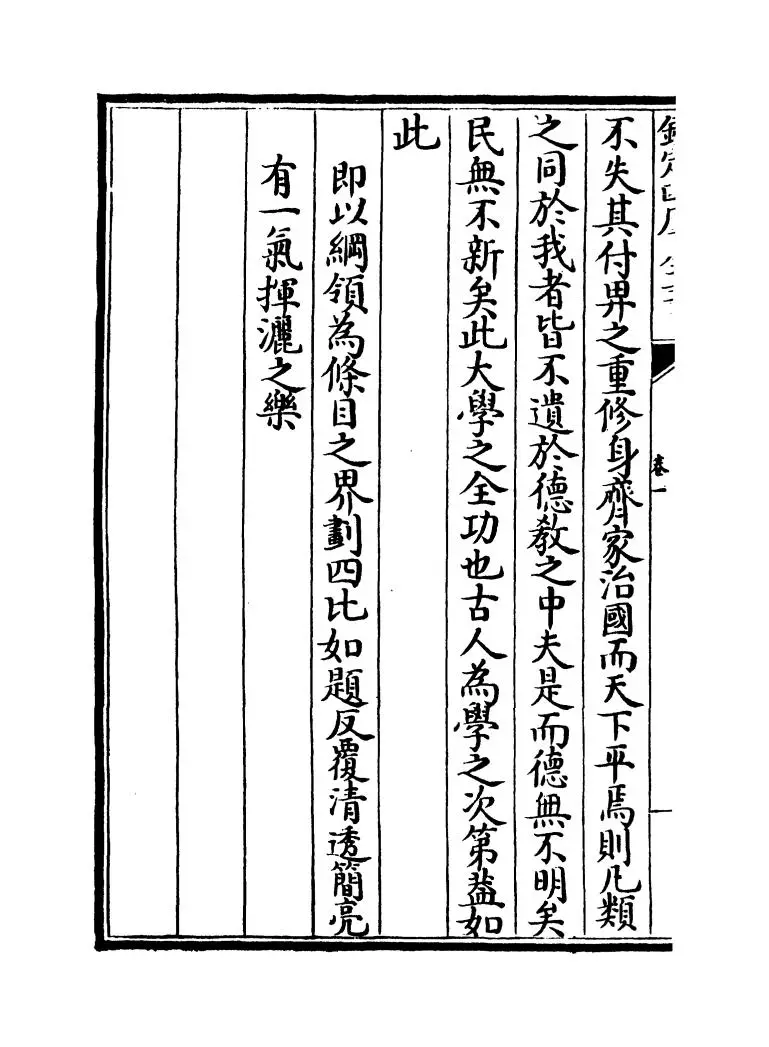 不失其付畀之重修身齊家治國而天下平焉則凡類
之同於我者皆不遺於德教之中夫是而德無不明矣
民無不新矣此大學之全功也古人為學之次第葢如
此
即以綱領為條目之界劃四比如題反覆清透簡亮
有一氣揮灑之樂
卷一